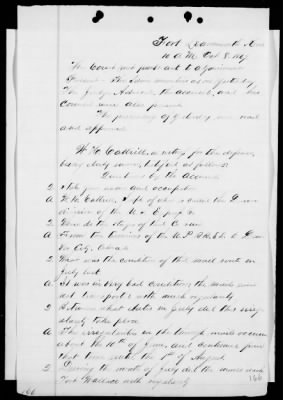 Fort Leavenworth Kans
10 A.M. Oct 8. 1867
The Court met pursuant to adjournment
Present - The same members as yesterday
The Judge Advocate, the accused, and his
Counsel were also present.
The proceedings of yesterday were read
and approved.
W. H. Cottrill, a witness for the defense,
being duly sworn, testified as follows
Questions by the Accused
Q State your name and occupation
A W. H. Cottrill,
division of the U S Ex
Q Where do the stages of that Co run
A From the terminus of the U.P. R.R. E.D. to Den
ver City, Colorado
Q What was the condition of the mail sent in
July last
A It was in very bad condition, the mails were
not transported with much regularity
Q Between what dates in July did this irreg
ularity take place
A The irregularities in the through mails occurred
about the 10th of June, and continued from
that time until the 1st of August
Q During the month of July did the mails reach
Fort Wallace with regularity
166
166